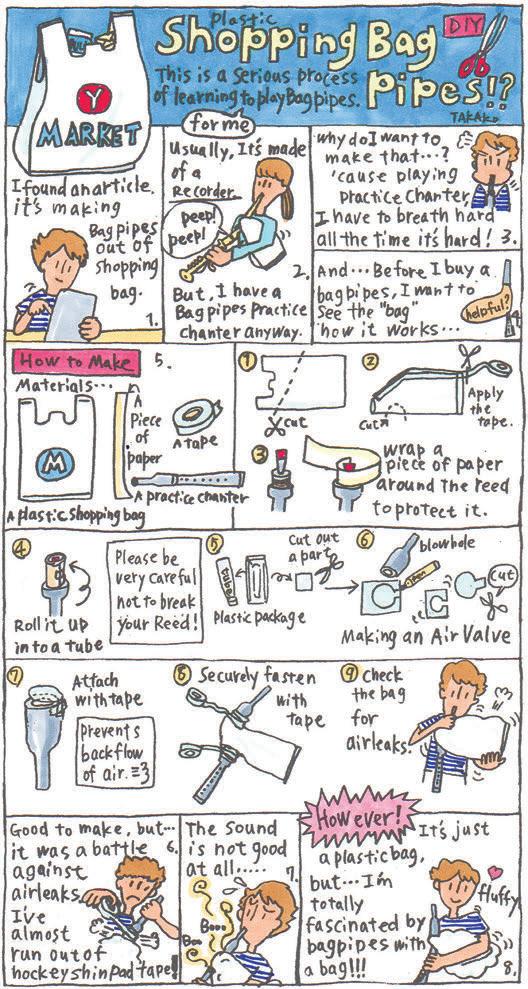 Plastic
Shopping Bag
DIY
Pipes!?
This is a serious process
of learning to play Bagpipes.
for me
TAKAKO
Y
MARKET
I found an article.
it's making
Bagpipes
out of
shopping
bag.
1.
Usually, It's made
of a
Recorder.
peep!
peep!
2.
But, I have a
Bagpipes practice
chanter anyway.
why do I want to
make that...?
'cause playing
Practice Chanter
I have to breath hard
all the time it's hard! 3.
And... Before I buy a
bagpipes, I want to
see the "bag"
how it works...
helpful?
4.
How to Make
5.
Materials...
M
A plastic shopping bag
A
Piece
of
paper
A tape
A practice chanter
①
cut
②
cut
Apply
the
tape.
③
wrap a
piece of paper
around the reed
to protect it.
④
Roll it up
into a tube
Please be
very careful
not to break
your Reed!
⑤
Cut out
a part
Plastic package
⑥
blowhole
pen
cut
Making an Air Valve
⑦
Attach
with tape
Prevents
backflow
of air.
⑧
Securely fasten
with
tape
⑨
Check
the bag
for
airleaks.
Good to make, but...
it was a battle 6.
against
airleaks
I've
almost
run out of
hockey shin pad tape!
The Sound
is not good
at all.....
7.
Booo
Boo
However!
It's just
a plastic bag,
but... I'm
totally
fascinated by
bagpipes with
a bag!!!
fluffy
8.